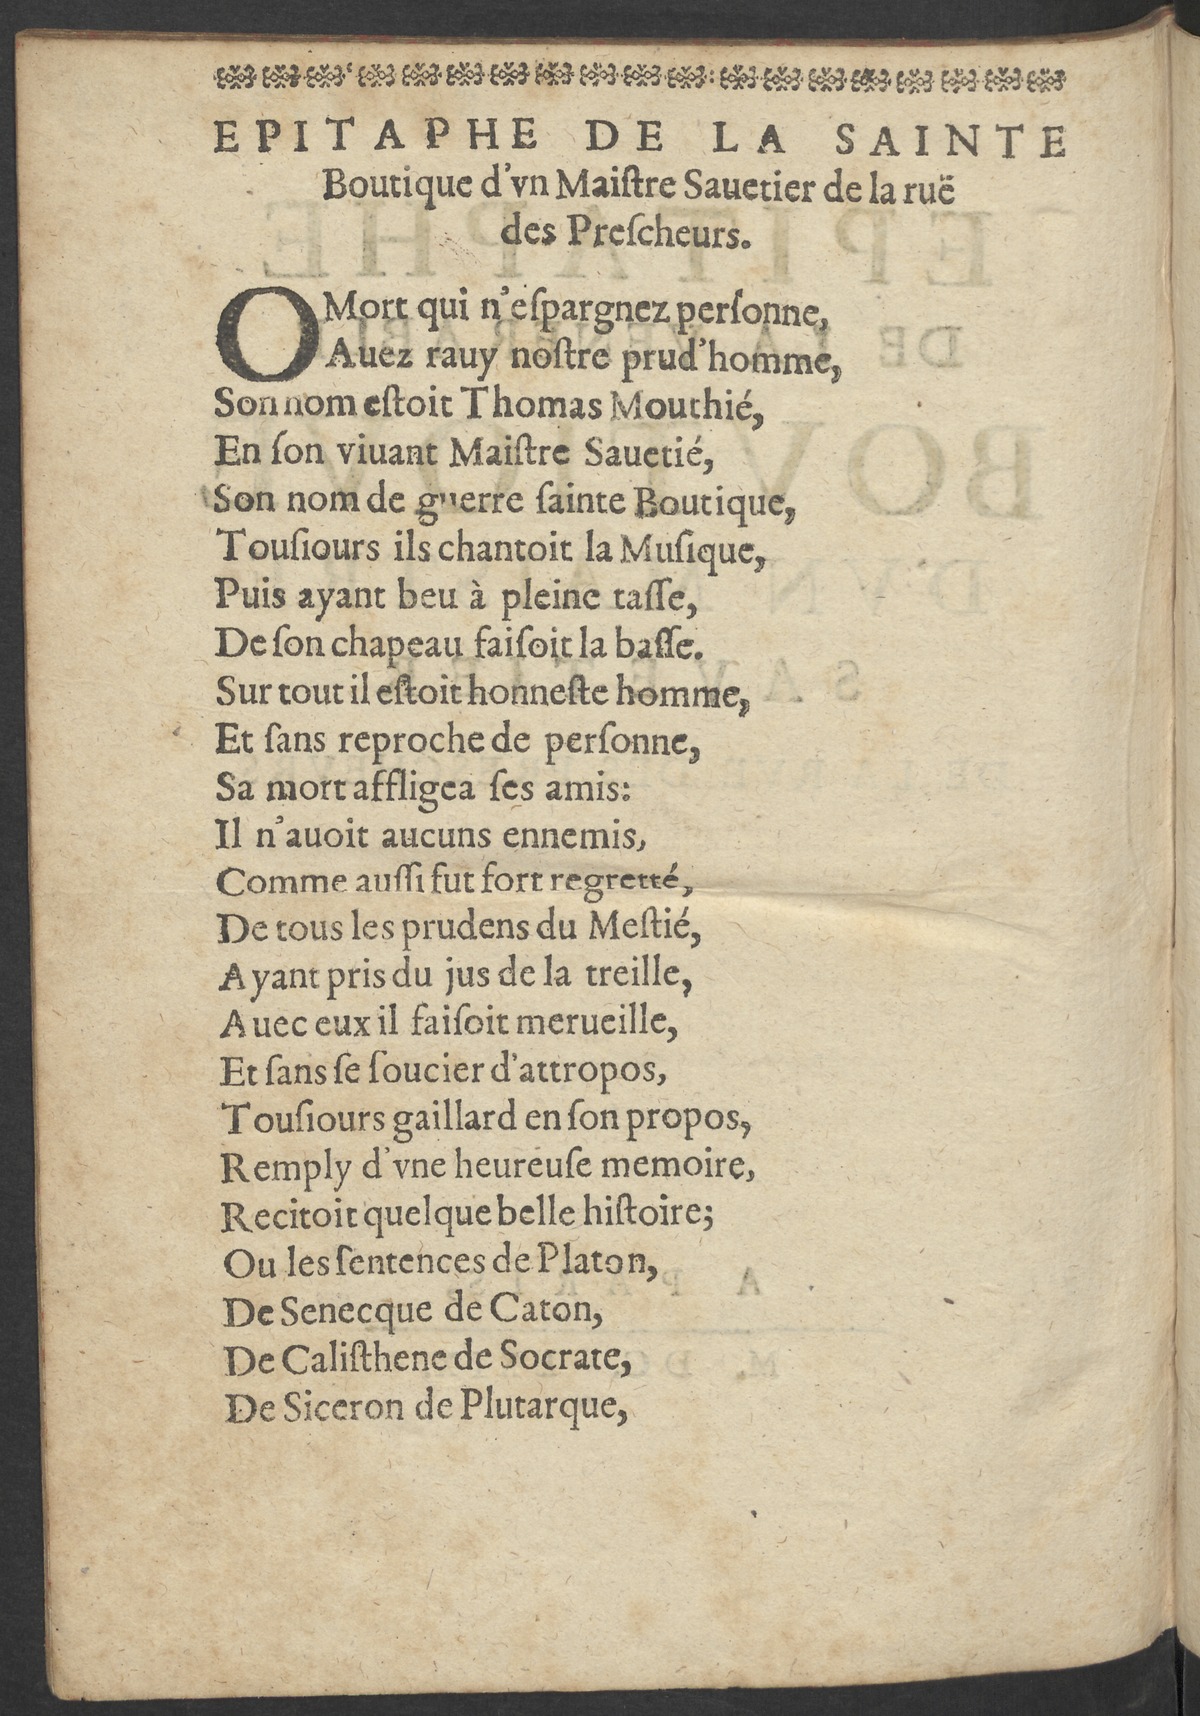 EPITAPHE DE LA SAINTE
Boutique d'vn Maiſtre Sauetier de la ruë
des Preſcheurs.
O Mort qui n'eſpargnez perſonne,
Auez rauy noſtre prud'homme,
Son nom eſtoit Thomas Mouthié,
En ſon viuant Maiſtre Sauetié,
Son nom de guerre ſainte Boutique,
Touſiours ils chantoit la Muſique,
Puis ayant beu à pleine taſſe,
De ſon chapeau faiſoit la baſſe.
Sur tout il eſtoit honneſte homme,
Et ſans reproche de perſonne,
Sa mort affligea ſes amis:
Il n'auoit aucuns ennemis,
Comme auſſi fut fort regretté,
De tous les prudens du Meſtié,
Ayant pris du jus de la treille,
Auec eux il faiſoit merueille,
Et ſans ſe ſoucier d'attropos,
Touſiours gaillard en ſon propos,
Remply d'vne heureuſe memoire,
Recitoit quelque belle hiſtoire;
Ou les ſentences de Platon,
De Senecque de Caton,
De Caliſthene de Socrate,
De Siceron de Plutarque,